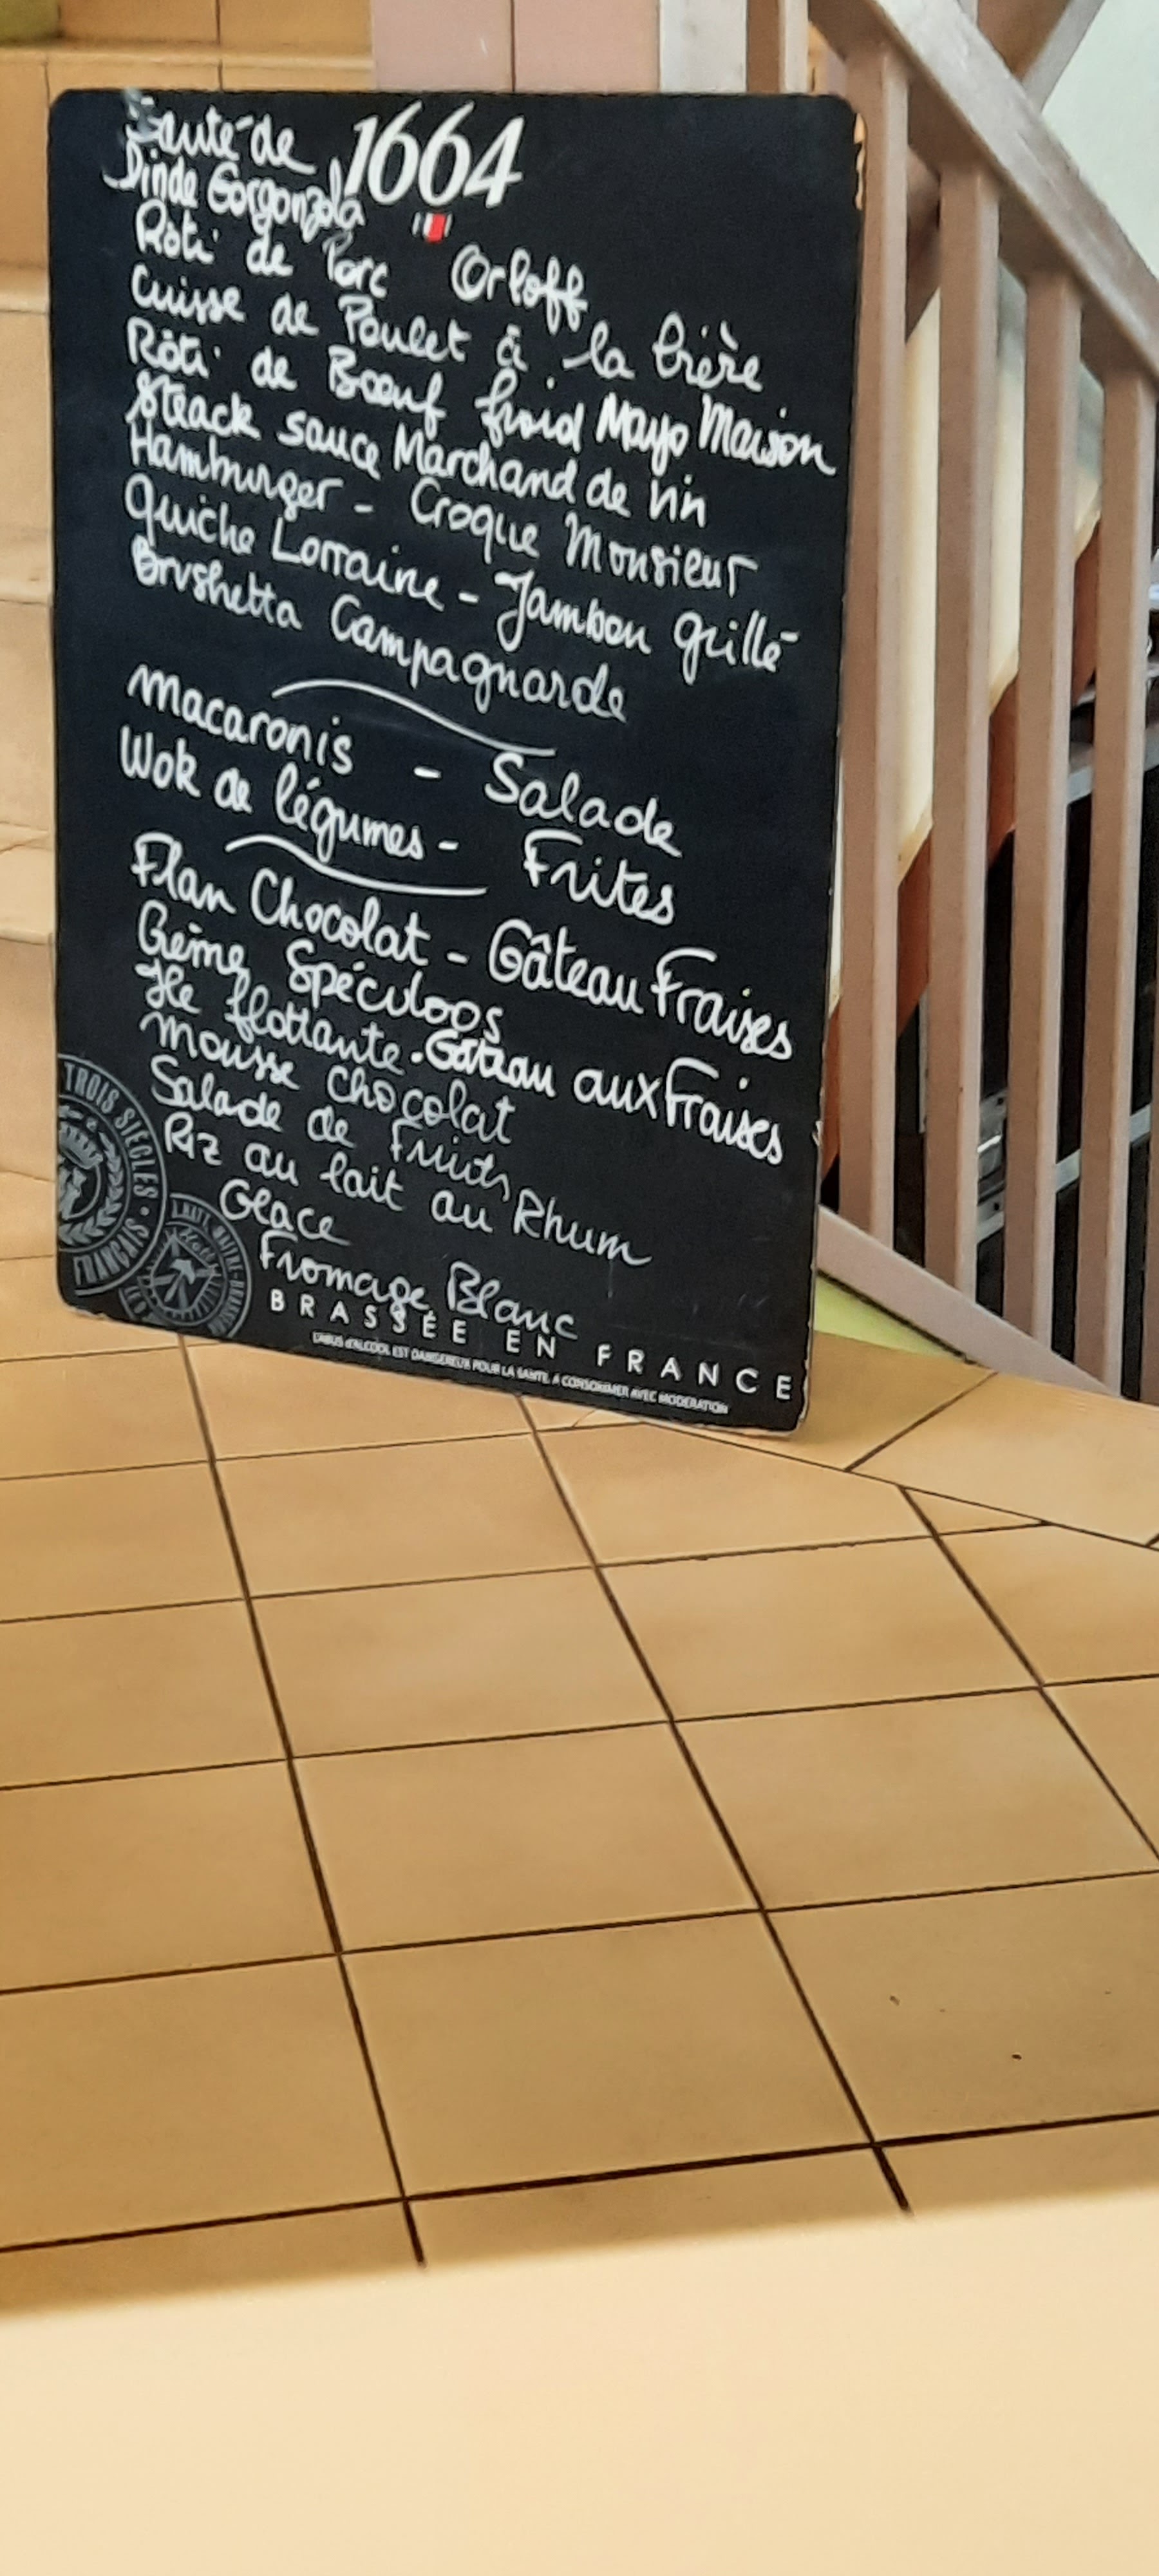 Sauté de
1664
Dinde Gorgonzola
Rôti de Porc Orloff
Cuisse de Poulet à la bière
Rôti de Bœuf froid Mayo Maison
Steack sauce Marchand de vin
Hamburger - Croque Monsieur
Quiche Lorraine - Jambon grillé
Brushetta Campagnarde
Macaronis - Salade
Wok de légumes - Frites
Flan Chocolat - Gâteau Fraises
Crème Spéculoos
Ile flottante. Gâteau aux Fraises
Mousse Chocolat
Salade de Fruits
Riz au lait au Rhum
Glace
Fromage Blanc
BRASSÉE EN FRANCE
L'ABUS D'ALCOOL EST DANGEREUX POUR LA SANTÉ, À CONSOMMER AVEC MODÉRATION
TROIS SIÈCLES